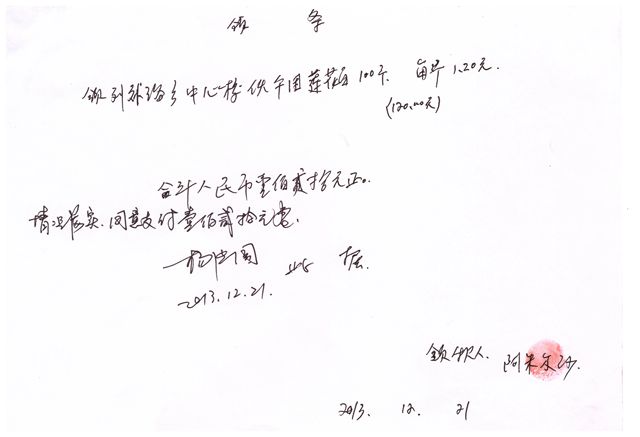 领 条
领到 乡中心校供午困莲花白100个. 每个1.20元.
(120.00元)
合计人民币壹佰贰拾元正.
情况属实.同意支付壹佰贰拾元整.
此 据.
2013.12.21.
领款人. 阿米尔沙.
2013. 12. 21